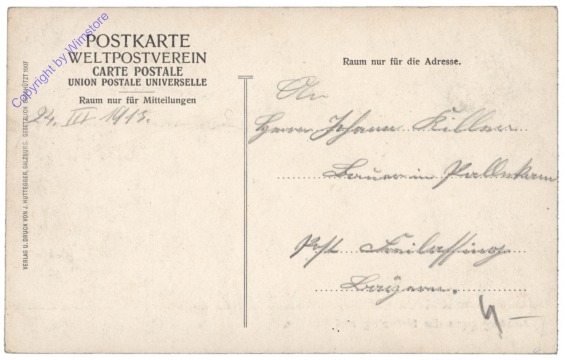 POSTKARTE
WELTPOSTVEREIN
CARTE POSTALE
UNION POSTALE UNIVERSELLE
Raum nur für Mitteilungen
24. III 1913.
Raum nur für die Adresse.
An
Herrn Johann Killer
Bauer in
Post Freilassing
Bayern.
VERLAG U. DRUCK VON J. HUTTEGGER, SALZBURG. GESETZLICH GESCHÜTZT 1907
Copyright by Wimstore